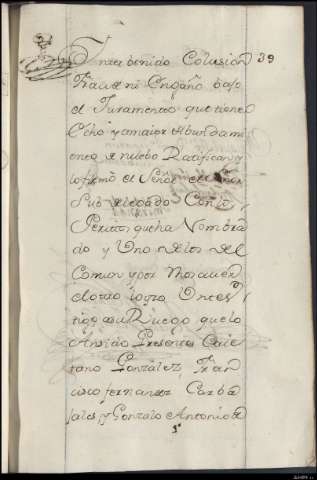 Interbenido Colusion 39
Fraude ni Engaño bajo
el Juramento que tiene
Echo y amaior Abundami
ento de nuebo Ratifican y
lo firmó el Señor
Sub delegado Con el
Perito que ha Nombra
do y Uno de los del
Comun y por no saver
el otro lo hizo Un tes
tigo a su Ruego que lo
Ansido Presentes Caie
tano González, Fran
cisco fernandez Carba
jales, y Gonzalo Antonio de